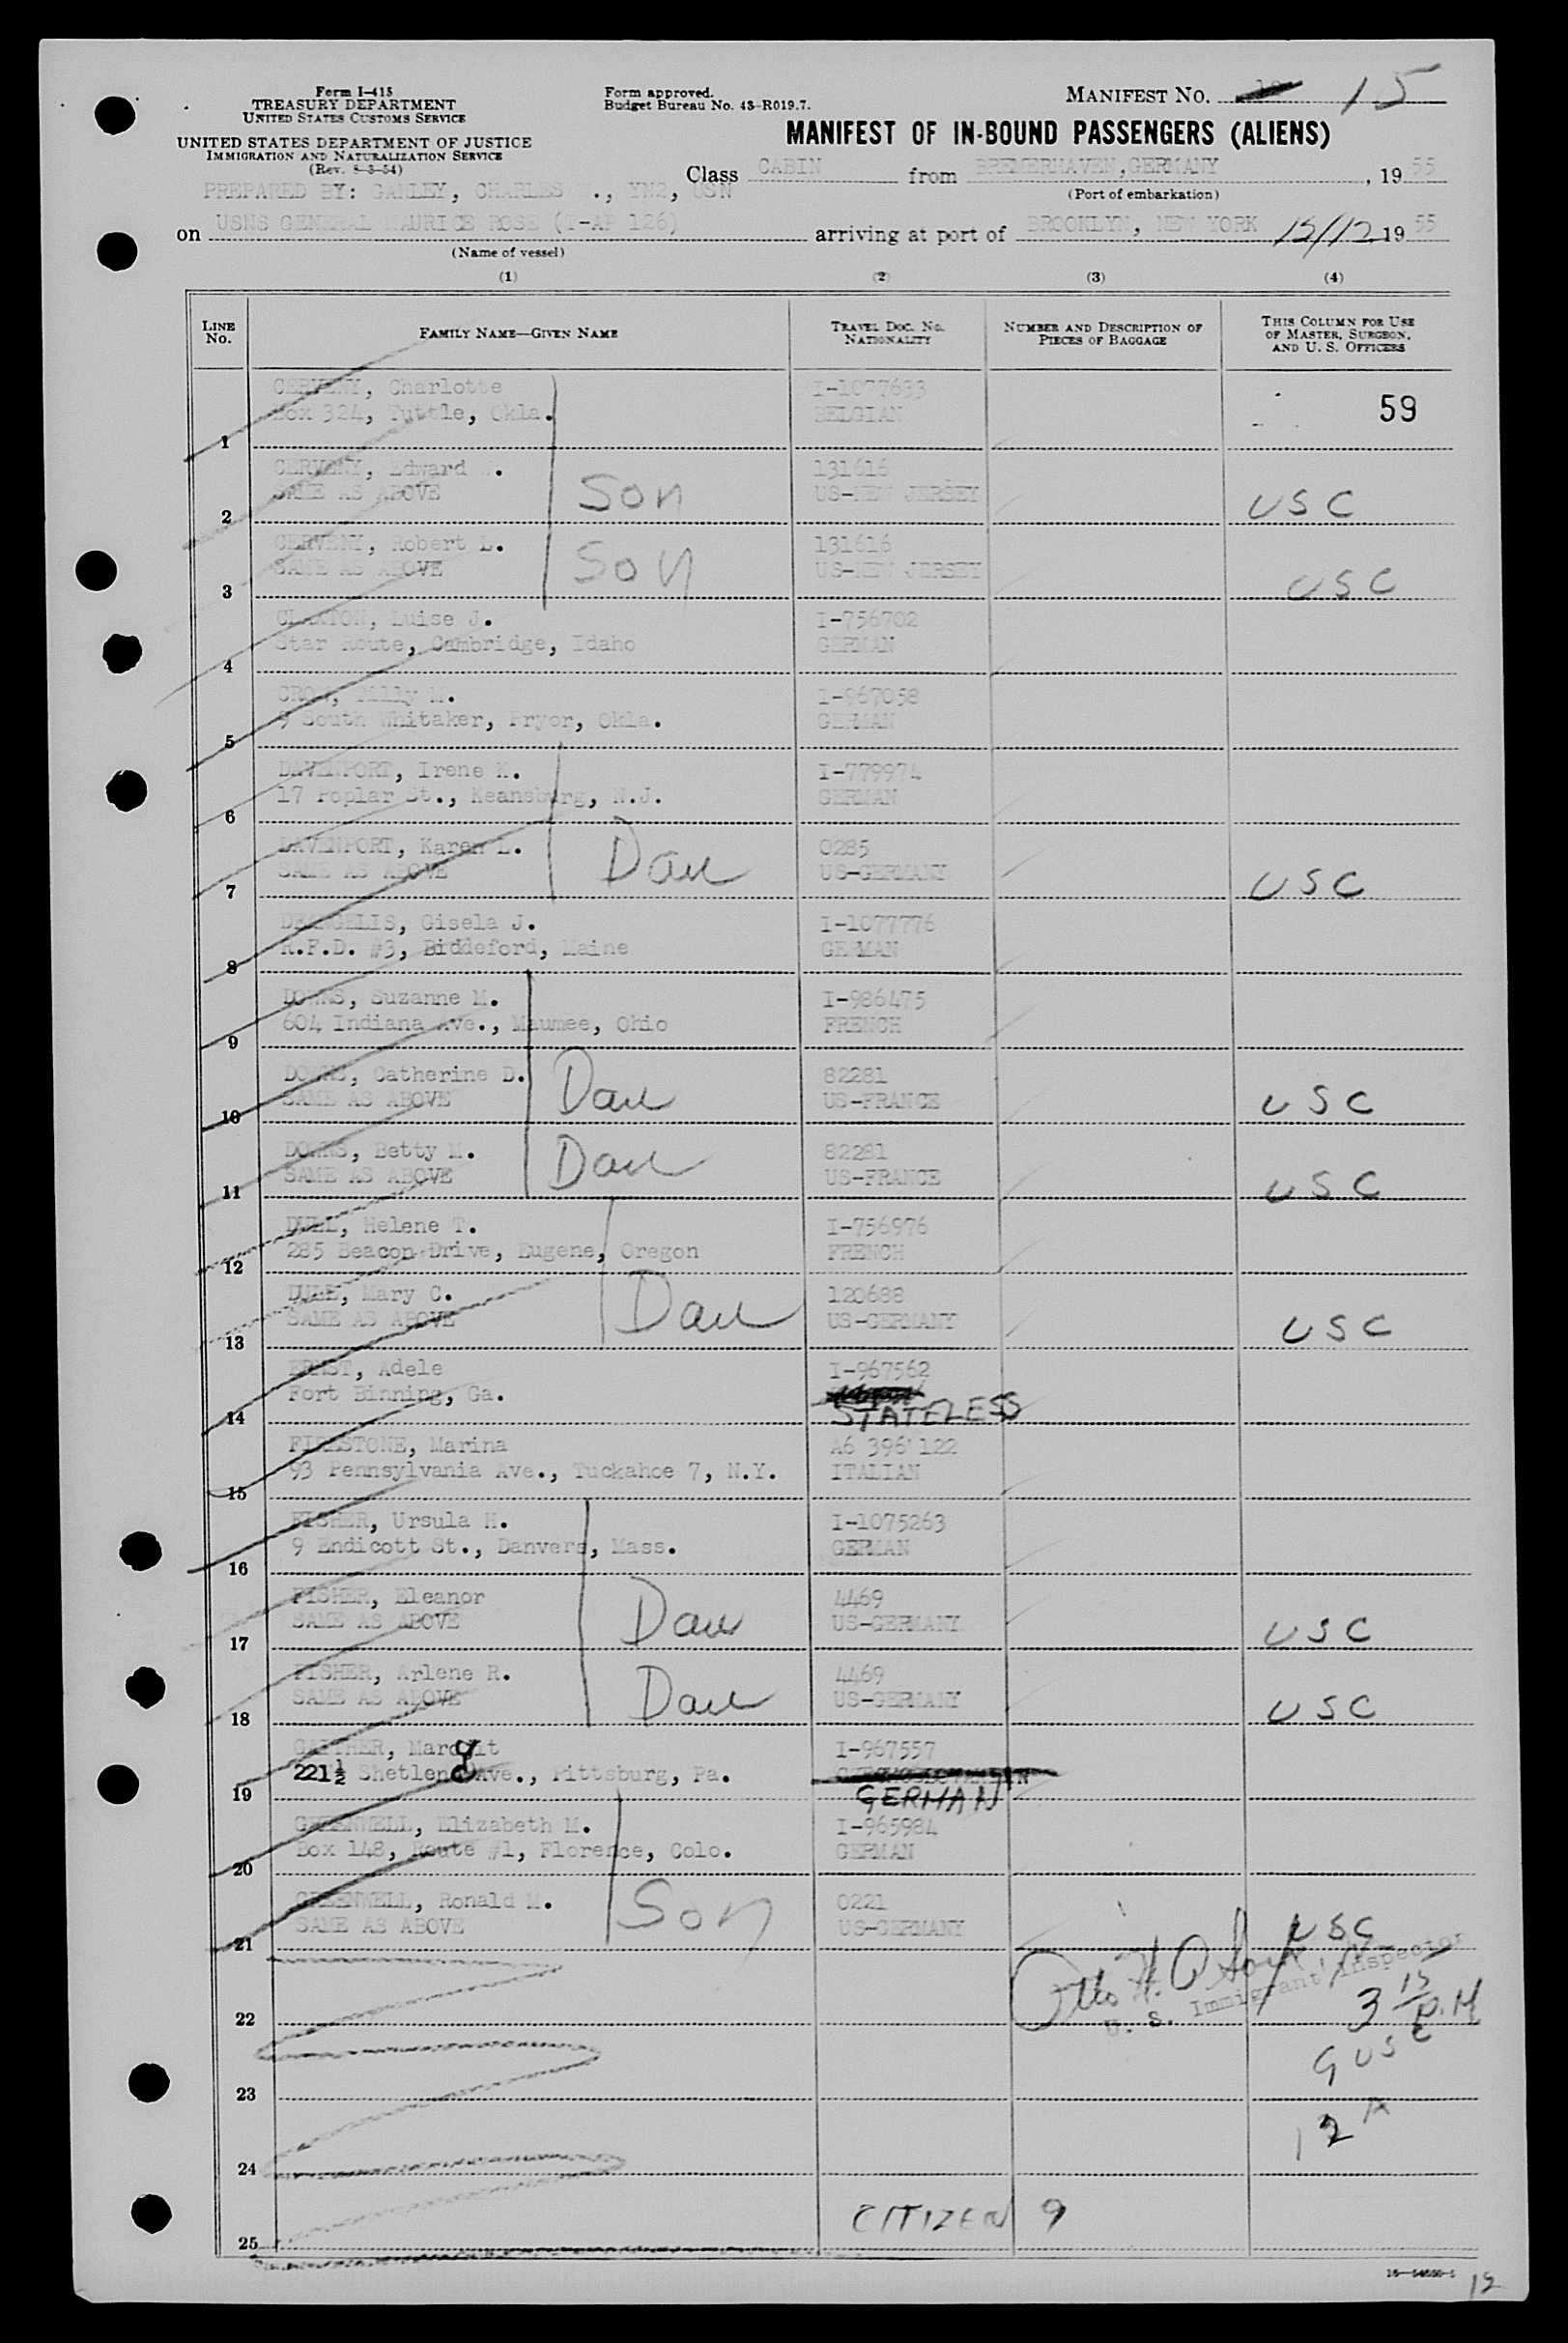 Form I-415
TREASURY DEPARTMENT
UNITED STATES CUSTOMS SERVICE
UNITED STATES DEPARTMENT OF JUSTICE
IMMIGRATION AND NATURALIZATION SERVICE
(Rev. 8-3-54)
Form approved.
Budget Bureau No. 43-R019.7.
MANIFEST NO. 15
MANIFEST OF IN-BOUND PASSENGERS (ALIENS)
Class CABIN from BREMERHAVEN, GERMANY, 1955
(Port of embarkation)
PREPARED BY: GANLEY, CHARLES ., YN2, USN
on USNS GENERAL MAURICE ROSE (T-AP 126) arriving at port of BROOKLYN, NEW YORK 12/12 1955
(Name of vessel)
(1) (2) (3) (4)
LINE No. FAMILY NAME—GIVEN NAME TRAVEL DOC. NO. NATIONALITY NUMBER AND DESCRIPTION OF PIECES OF BAGGAGE THIS COLUMN FOR USE OF MASTER, SURGEON, AND U. S. OFFICERS
CERVENY, Charlotte I-1077633
Box 324, Tuttle, Okla. BELGIAN 59
1
CERVENY, Edward . 131616
SAME AS ABOVE Son US-NEW JERSEY USC
2
CERVENY, Robert L. 131616
SAME AS ABOVE Son US-NEW JERSEY USC
3
CLAXTON, Luise J. I-756702
Star Route, Cambridge, Idaho GERMAN
4
CROW, Milly M. I-967058
9 South Whitaker, Pryor, Okla. GERMAN
5
DAVENPORT, Irene K. I-779974
17 Poplar St., Keansburg, N.J. GERMAN
6
DAVENPORT, Karen L. 0285
SAME AS ABOVE Dau US-GERMANY USC
7
DEANGELIS, Gisela J. I-1077776
R.F.D. #3, Biddeford, Maine GERMAN
8
DOWNS, Suzanne M. I-986475
604 Indiana Ave., Maumee, Ohio FRENCH
9
DOWNS, Catherine D. 82281
SAME AS ABOVE Dau US-FRANCE USC
10
DOWNS, Betty M. 82281
SAME AS ABOVE Dau US-FRANCE USC
11
DULL, Helene T. I-756976
285 Beacon Drive, Eugene, Oregon FRENCH
12
DULL, Mary C. 120688
SAME AS ABOVE Dau US-GERMANY USC
13
ERNST, Adele I-967562
Fort Binning, Ga. STATELESS
14
FIRESTONE, Marina A6 396 122
93 Pennsylvania Ave., Tuckahoe 7, N.Y. ITALIAN
15
FISHER, Ursula H. I-1075263
9 Endicott St., Danvers, Mass. GERMAN
16
FISHER, Eleanor 4469
SAME AS ABOVE Dau US-GERMANY USC
17
FISHER, Arlene R. 4469
SAME AS ABOVE Dau US-GERMANY USC
18
GAITHER, Margit I-967557
221½ Shetlend Ave., Pittsburg, Pa. GERMAN
19
GREENWELL, Elizabeth M. I-965984
Box 148, Route #1, Florence, Colo. GERMAN
20
GREENWELL, Ronald M. 0221
SAME AS ABOVE Son US-GERMANY USC
21
Otto H.
U. S. Immigrant Inspector
3 15 P.M
22
9 USC
23
12 A
24
CITIZEN 9
25
12